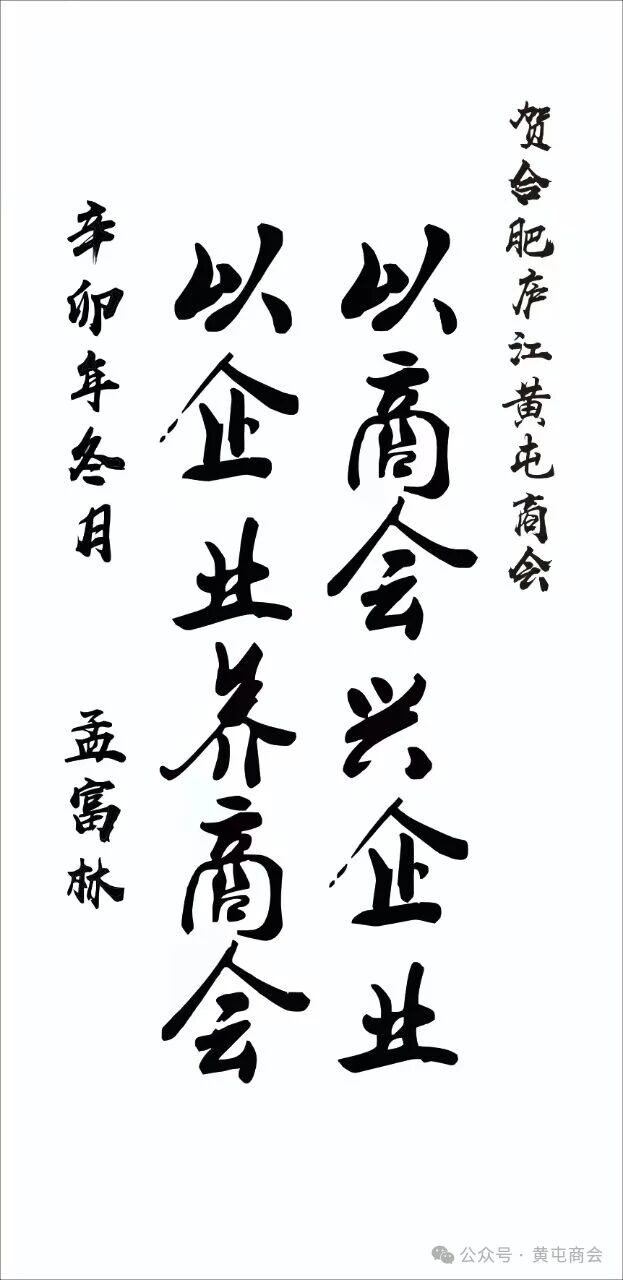 贺合肥庐江黄屯商会
以商会兴企业
以企业养商会
辛卯年冬月 孟富林
公众号·黄屯商会